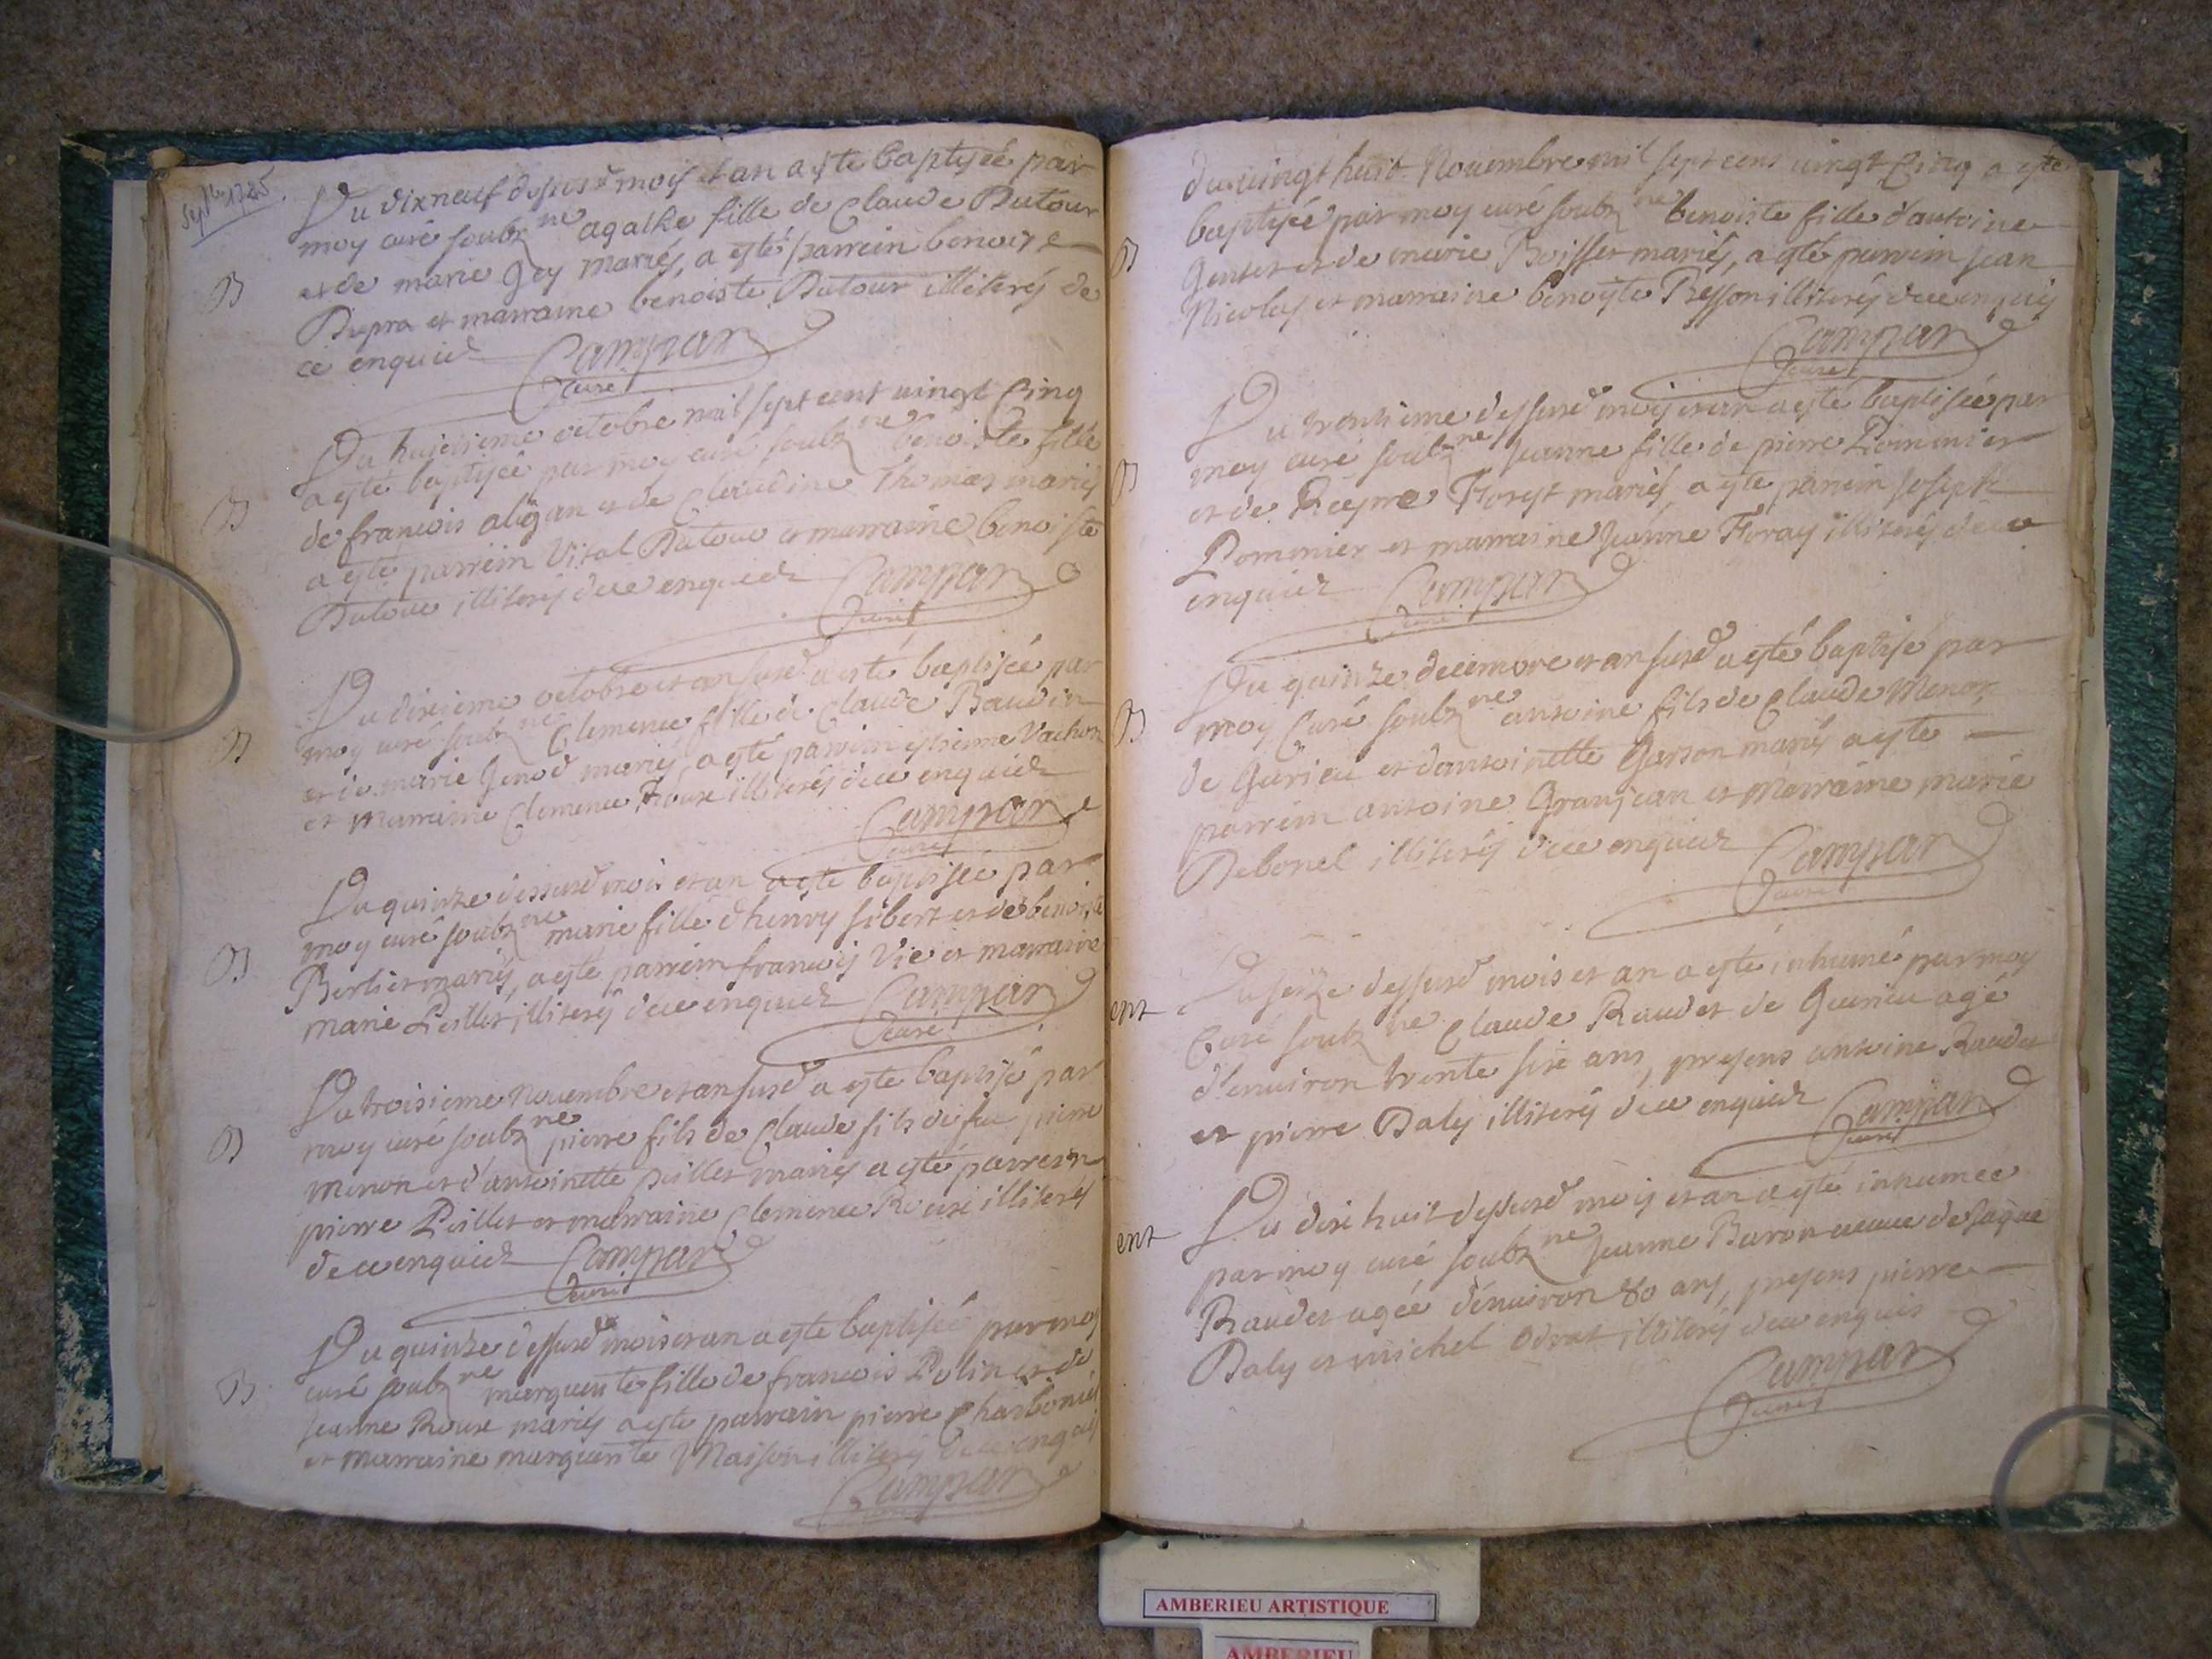 Sepbre 1725
Du dixneuf dessusd mois et an a esté baptisée par
moy curé soubzne agathe fille de Claude Dutour
et de marie Gey mariés, a esté parrein benoist
Dupra et marraine benoiste Dutour illiterés de
ce enquid Campan
curé
B
Du huictieme octobre mil sept cent vingt Cinq
a esté baptisée par moy curé soubzne benoiste fille
de francois aligan et de Claudine Thomas mariés
a esté parrein Vital Dutour et marraine benoiste
Dutour illiterés de ce enquidz Campan
curé
B
Du dixieme octobre et an susd a esté baptisée par
moy curé soubzne Clemence fille de Claude Baudin
et de marie Genod mariés, a esté parrein estienne Vachon
et Marraine Clemence Roux illiterés de ce enquidz
Campan
curé
B
Du quinze dessusd mois et an a esté baptisée par
moy curé soubzne marie fille d'henry sibert et de benoiste
Berlier mariés, a esté parrein francois Vic et marraine
marie Peillet illiterés de ce enquidz Campan
curé
B
Du troisieme Novembre et an susd a esté baptisé par
moy curé soubzne pierre fils de Claude fils de feu pierre
menon et d'antoinette peillet mariés a esté parrein
pierre Peillet et marraine Clemence Roux illiterés
de ce enquidz Campan
curé
B
Du quinze dessusd mois et an a esté baptisée par moy
curé soubzne marguerite fille de francois Polin et de
jeanne Roux mariés a esté parrain pierre Charbonié
et marraine marguerite Maison illiterés de ce enquis
Campan
B
du vingt huit Novembre mil sept cens vingt Cinq a esté
baptisée par moy curé soubzne benoiste fille d'antoine
Genset et de marie Boisset mariés, a esté parrein jean
Nicolas et marraine benoiste Tresson illiterés de ce enquis
Campan
curé
B
Du trentieme dessusd mois et an a esté baptisée par
moy curé soubzne jeanne fille de pierre Pommier
et de Reyne Florest mariés a esté parrein joseph
Pommier et marraine jeanne Floray illiterés de ce
enquidz Campan
curé
B
Du quinze decembre et an susd a esté baptisé par
moy Curé soubzne antoine fils de Claude Menon
de Gurieu et d'antoinette Garson mariés a esté
parrein antoine Granjean et Marraine marie
Debonel illiterés de ce enquidz Campan
curé
B
Du seize dessusd mois et an a esté inhumé par moy
Curé soubzne Claude Raudet de Guerieu agé
d'environ trente sixe ans, presens antoine Raudet
et pierre Daly illiterés de ce enquidz Campan
curé
ent
Du dixe huit dessusd mois et an a esté inhumée
par moy curé soubzne jeanne Buron veuve de jaque
Raudet agée d'environ 80 ans, presens pierre
Daly et michel Odrat illiterés de ce enquis
Campan
curé
ent
AMBERIEU ARTISTIQUE
AMBERIEU